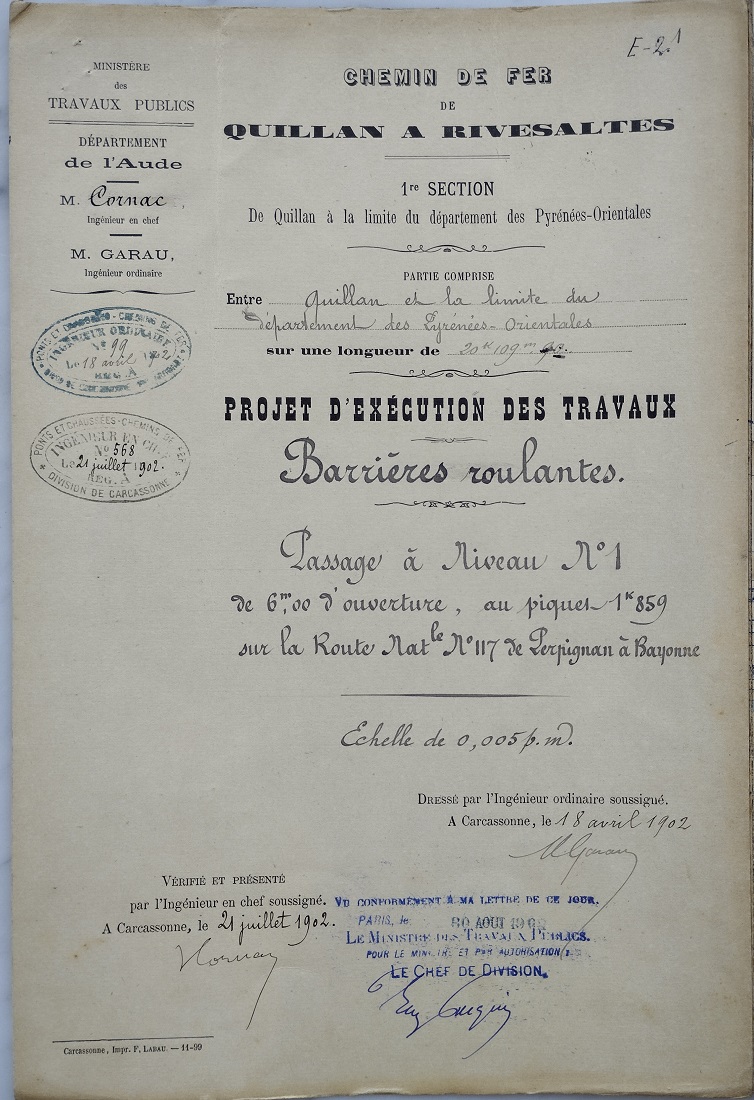 E-2.1
MINISTÈRE
des
TRAVAUX PUBLICS
DÉPARTEMENT
de l'Aude
M. Cornac,
Ingénieur en chef
M. GARAU,
Ingénieur ordinaire
PONTS ET CHAUSSÉES - CHEMINS DE FER
INGÉNIEUR ORDINAIRE
N° 99
Le 18 avril 1902
REG. A
PONTS ET CHAUSSÉES - CHEMINS DE FER
INGÉNIEUR EN CHEF
N° 568
Le 21 juillet 1902.
REG. A
DIVISION DE CARCASSONNE
CHEMIN DE FER
DE
QUILLAN A RIVESALTES
1re SECTION
De Quillan à la limite du département des Pyrénées-Orientales
PARTIE COMPRISE
Entre Quillan et la limite du
département des Pyrénées-Orientales
sur une longueur de 20k 109m 90.
PROJET D'EXÉCUTION DES TRAVAUX
Barrières roulantes.
Passage à Niveau N° 1
de 6m,00 d'ouverture, au piquet 1k 859
sur la Route Natle N° 117 de Perpignan à Bayonne
Echelle de 0,005 p. m.
DRESSÉ par l'Ingénieur ordinaire soussigné.
A Carcassonne, le 18 avril 1902
MGarau
VÉRIFIÉ ET PRÉSENTÉ
par l'Ingénieur en chef soussigné.
A Carcassonne, le 21 juillet 1902.
Cornac
VU CONFORMÉMENT À MA LETTRE DE CE JOUR.
PARIS, le 30 AOUT
LE MINISTRE DES TRAVAUX PUBLICS.
POUR LE MINISTRE ET PAR AUTORISATION:
LE CHEF DE DIVISION.
Carcassonne, Impr. F. LABAU. — 11-99